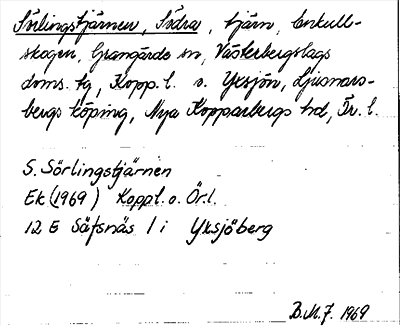 Sörlingstjärnen, Södra, tjärn, Enkull-
skogen, Grangärde sn, Västerbergslags
doms. tg, Kopp. l. o. Yxsjön, Ljusnars-
bergs köping, Nya Kopparbergs hd, Ör. l.
S. Sörlingstjärnen
Ek (1969) Koppl. o. Ör.l.
12 E Säfsnäs 1 i Yxsjöberg
B.M.J. 1969